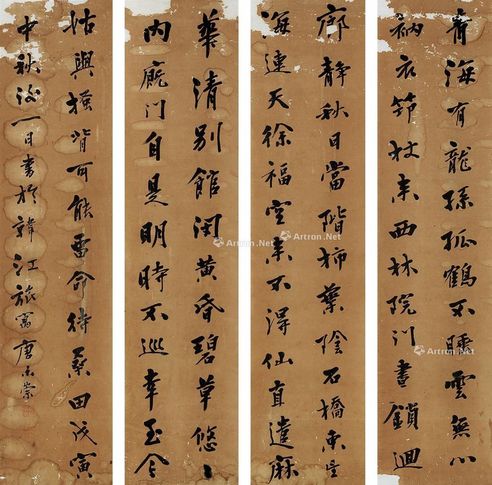 青海有龍孫孤鶴不睡雲無心
衲衣筇杖來西林院門晝鎖迴
廊靜秋日當階柿葉陰石橋東望
海連天徐福空來不得仙直遣麻
姑與搔背可能留命待桑田戊寅
華清別館閉黃昏碧草悠〻
內厩門自是明時不巡幸至今
中秋後一日書於韓江旅寓唐未棠
Artron.Net
Artron.Net
Artron.Net